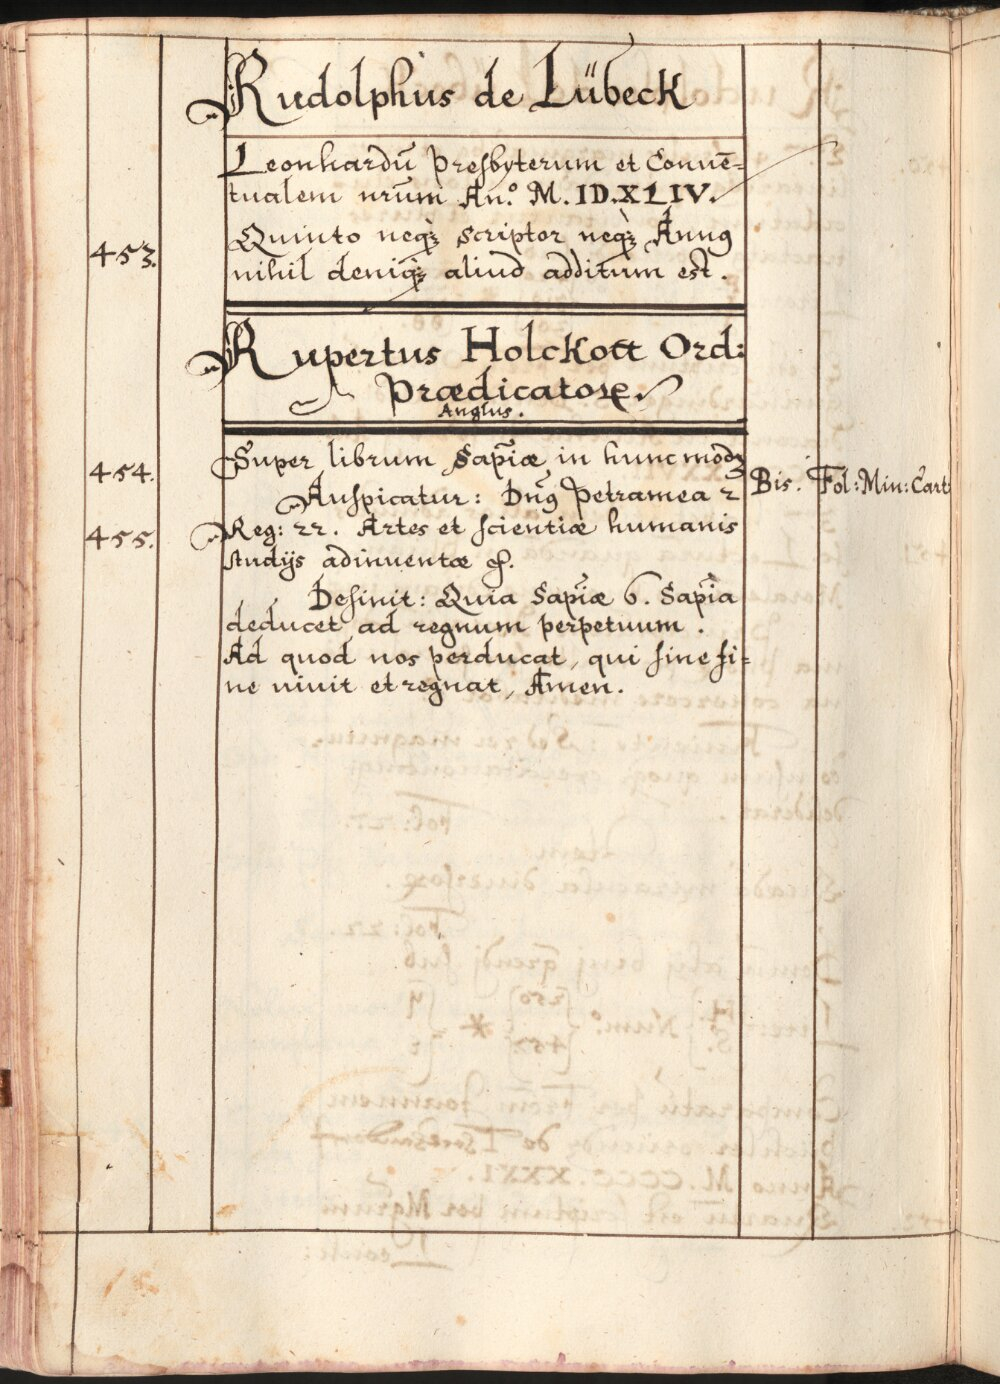 Rudolphus de Lübeck
Leonhardū Presbyterum et Conuē-
tualem nr̃um An.º M.ID.XLIV.
453. Quinto neqꝫ scriptor neqꝫ Annꝰ
nihil deniqꝫ aliud additum est.
Rupertus Holckott Ord:
Prædicatoꝝ.
Anglus.
454. Super librum Sap̃iæ in hunc modꝫ Bis. Fol: Min: Cart:
Auspicatur: Dn̄ꝰ petra mea 2
455. Reg: 22. Artes et scientiæ humanis
studijs adinuentæ
Definit: Quia Sap̃iæ 6. Sap̃ia
deducet ad regnum perpetuum.
Ad quod nos perducat, qui sine fi-
ne viuit et regnat, Amen.